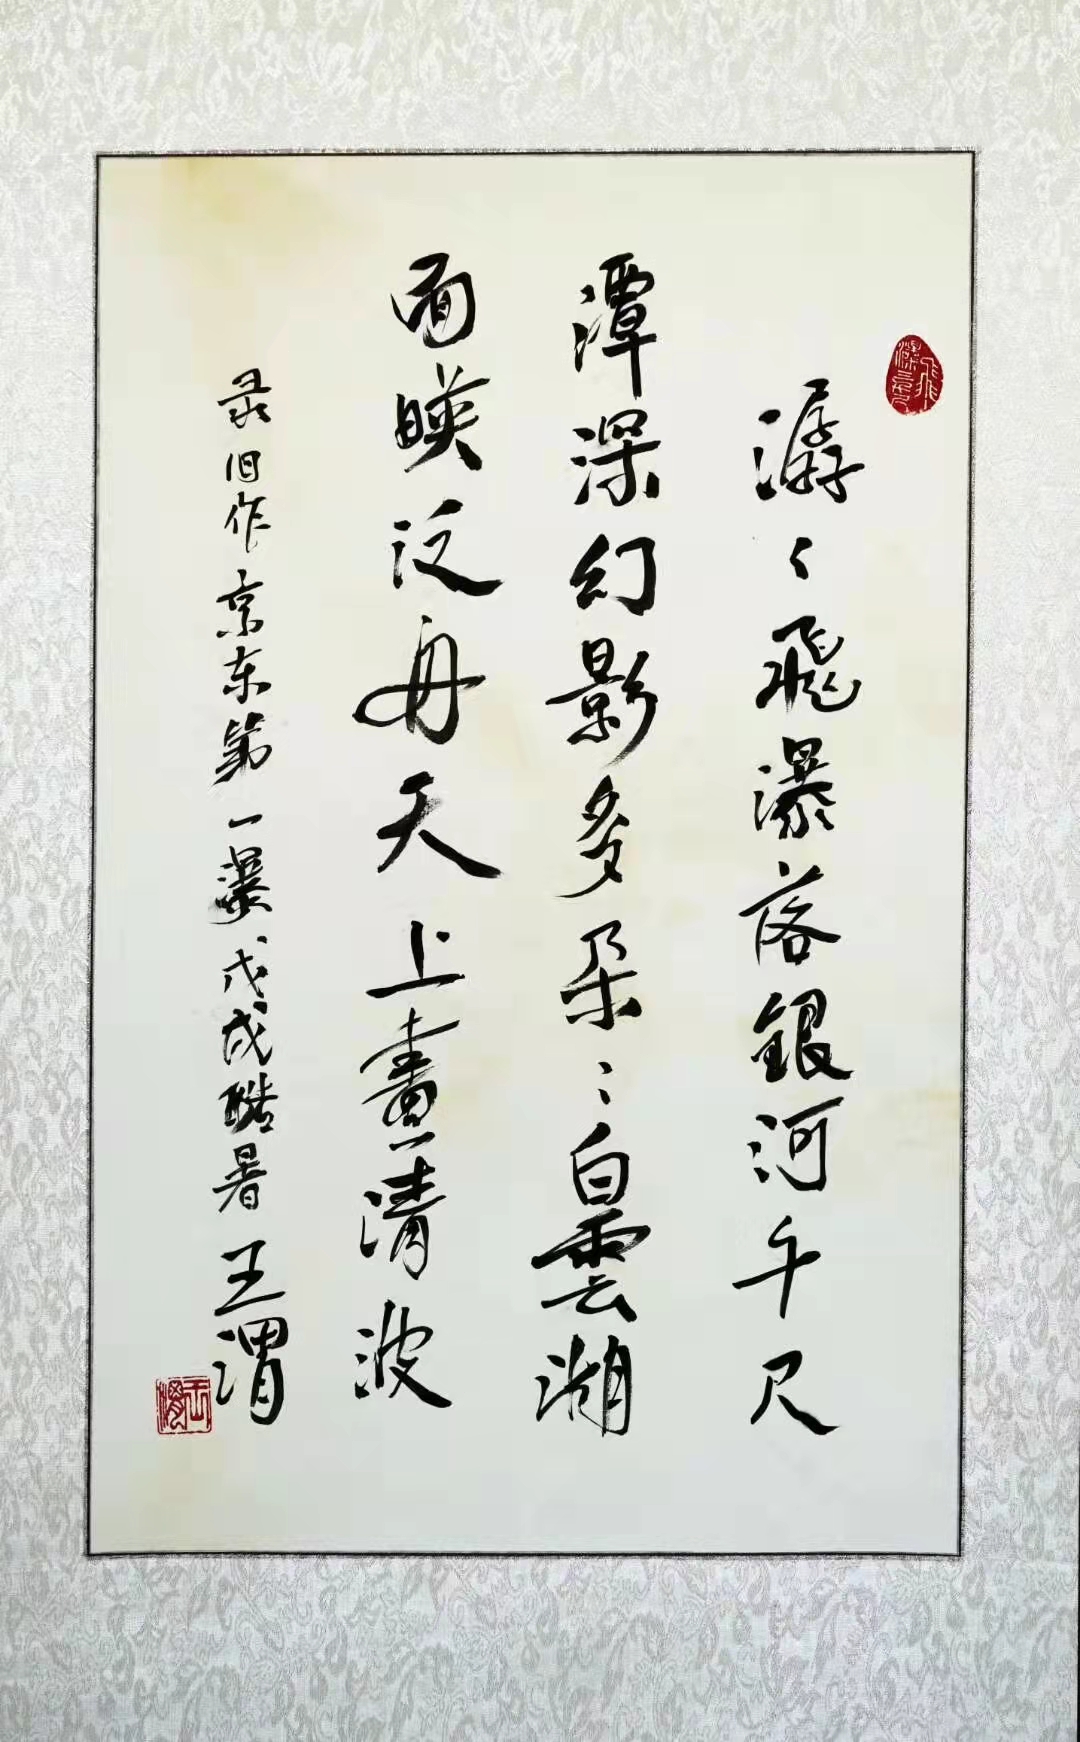 潺〻飛瀑落銀河千尺
潭深幻影多朵〻白雲湖
面暎泛舟天上畫清波
录旧作京东第一瀑戊戌酷暑王渭
王渭